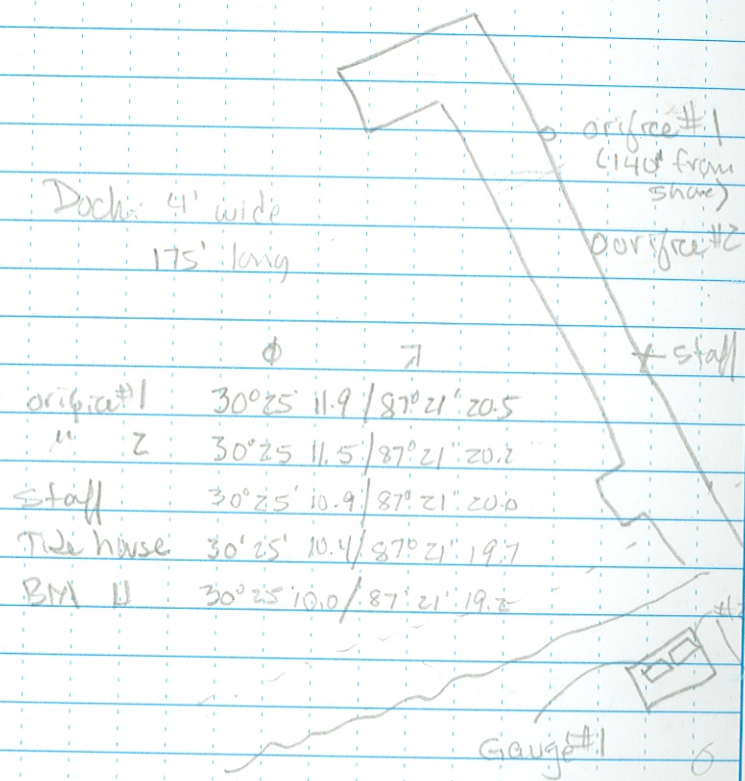 orifice #1
(140' from
shore)
Dock: 4' wide
175' long
orifice #2
staff
ϕ λ
orifice #1 30°25' 11.9 / 87°21' 20.5
" 2 30°25 11.5 / 87°21' 20.2
staff 30°25' 10.9 / 87°21' 20.0
Tide house 30°25' 10.4 / 87°21' 19.7
BM 30°25' 10.0 / 87°21' 19.2
Gauge #1
6